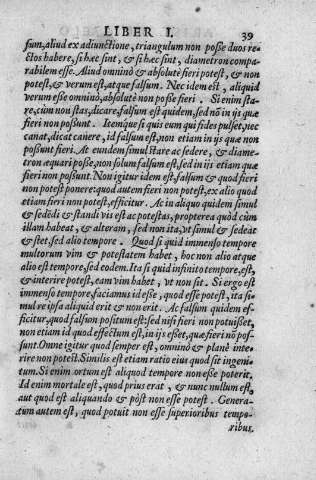 LIBER I. 39
sum, aliud ex adiunctione, triangulum non posse duos re-
ctos habere, si hæc sint, & si hæc sint, diametron compa-
rabilem esse. Aliud omninò & absolutè fieri potest, & non
potest, & verum est, atque falsum. Nec idem est, aliquid
verum esse omninò, absolutè non posse fieri. Si enim sta-
re, cùm non stas, dicare, falsum est quidem, sed nõ in ijs quæ
fieri non possunt. Itemque si quis eum qui fides pulset, nec
canat, dicat canere, id falsum est, non etiam in ijs quæ non
possunt fieri. At eundem simul stare ac sedere, & diame-
tron æquari posse, non solum falsum est, sed in ijs etiam quæ
fieri non possunt. Non igitur idem est, falsum & quod fieri
non potest ponere: quod autem fieri non potest, ex alio quod
etiam fieri non potest, efficitur. Ac in aliquo quidem simul
& sededi & standi vis est ac potestas, propterea quòd cùm
illam habeat, & alteram, sed non ita, vt simul & sedeat
& stet, sed alio tempore. Quod si quid immenso tempore
multorum vim & potestatem habet, hoc non alio atque
alio est tempore, sed eodem. Ita si quid infinito tempore, est,
& interire potest, eam vim habet, vt non sit. Si ergo est
immenso tempore, faciamus id esse, quod esse potest, ita si-
mul re ipsa aliquid erit & non erit. Ac falsum quidem ef-
ficitur, quòd falsum positum est: sed nisi fieri non potuisset,
non etiam id quod effectum est, in ijs esset, quæ fieri nõ pos-
sunt. Omne igitur quod semper est, omninò & planè inte-
rire non poteit. Similis est etiam ratio eius quod sit ingeni-
tum. Si enim ortum est aliquod tempore non esse poterit.
Id enim mortale est, quod prius erat, & nunc nullum est,
aut quod est aliquando & pòst non esse potest. Genera-
tum autem est, quod potuit non esse superioribus tempo-
ribus.